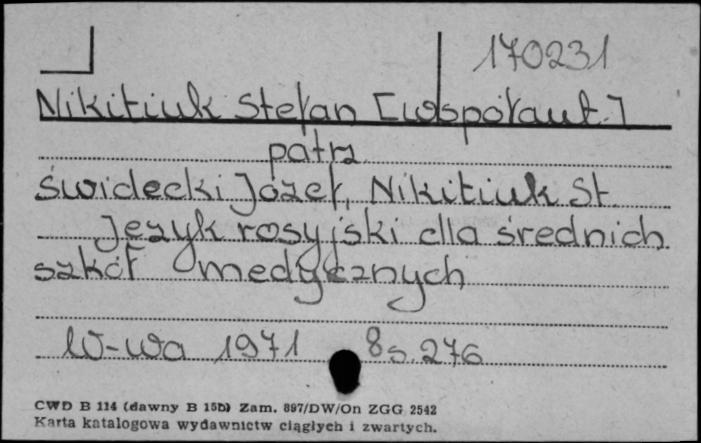 170231
Nikitiuk Stefan [współaut.]
patrz
Świdecki Józef, Nikitiuk St.
Język rosyjski dla średnich
szkół medycznych
W-wa 1971 8 s. 276
CWD B 114 (dawny B 15b) Zam. 897/DW/On ZGG 2542
Karta katalogowa wydawnictw ciągłych i zwartych.